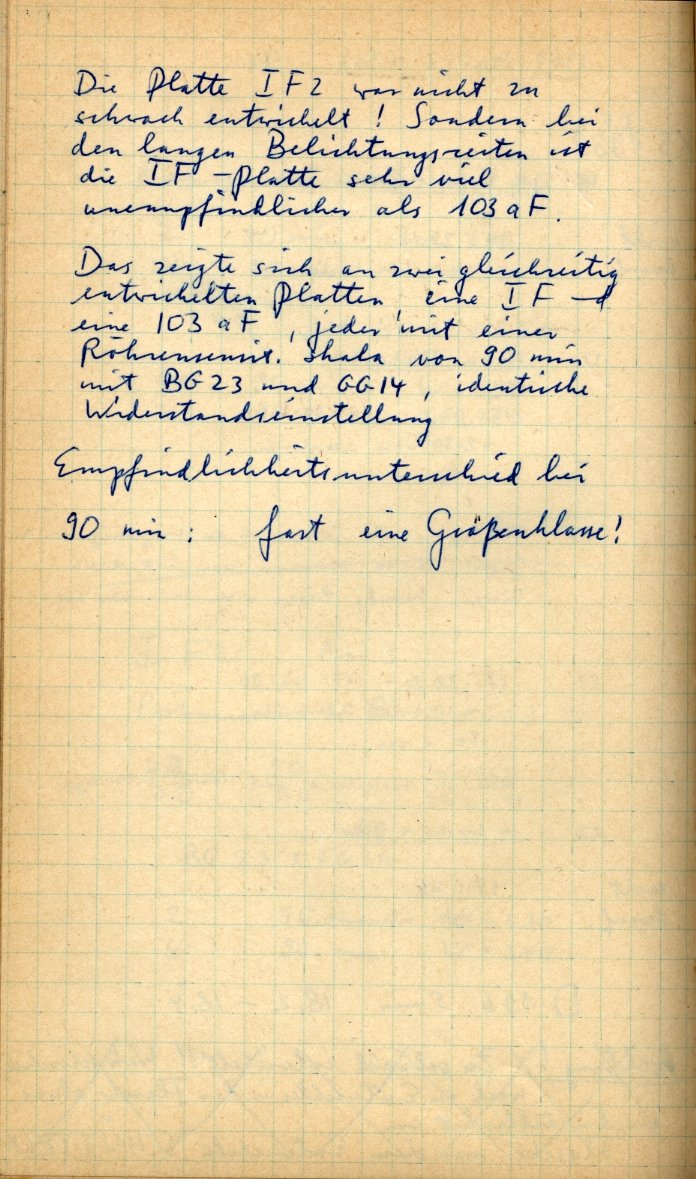 Die Platte IF2 war nicht zu
schwach entwickelt! Sondern bei
den langen Belichtungszeiten ist
die IF-Platte sehr viel
unempfindlicher als 103aF.
Das zeigte sich an zwei gleichzeitig
entwickelten Platten, eine IF
eine 103aF, jeder mit einer
Röhrensensit. Skala von 90 min
mit BG23 und GG14, identische
Widerstandseinstellung
Empfindlichkeitsunterschied bei
90 min: fast eine Größenklasse!